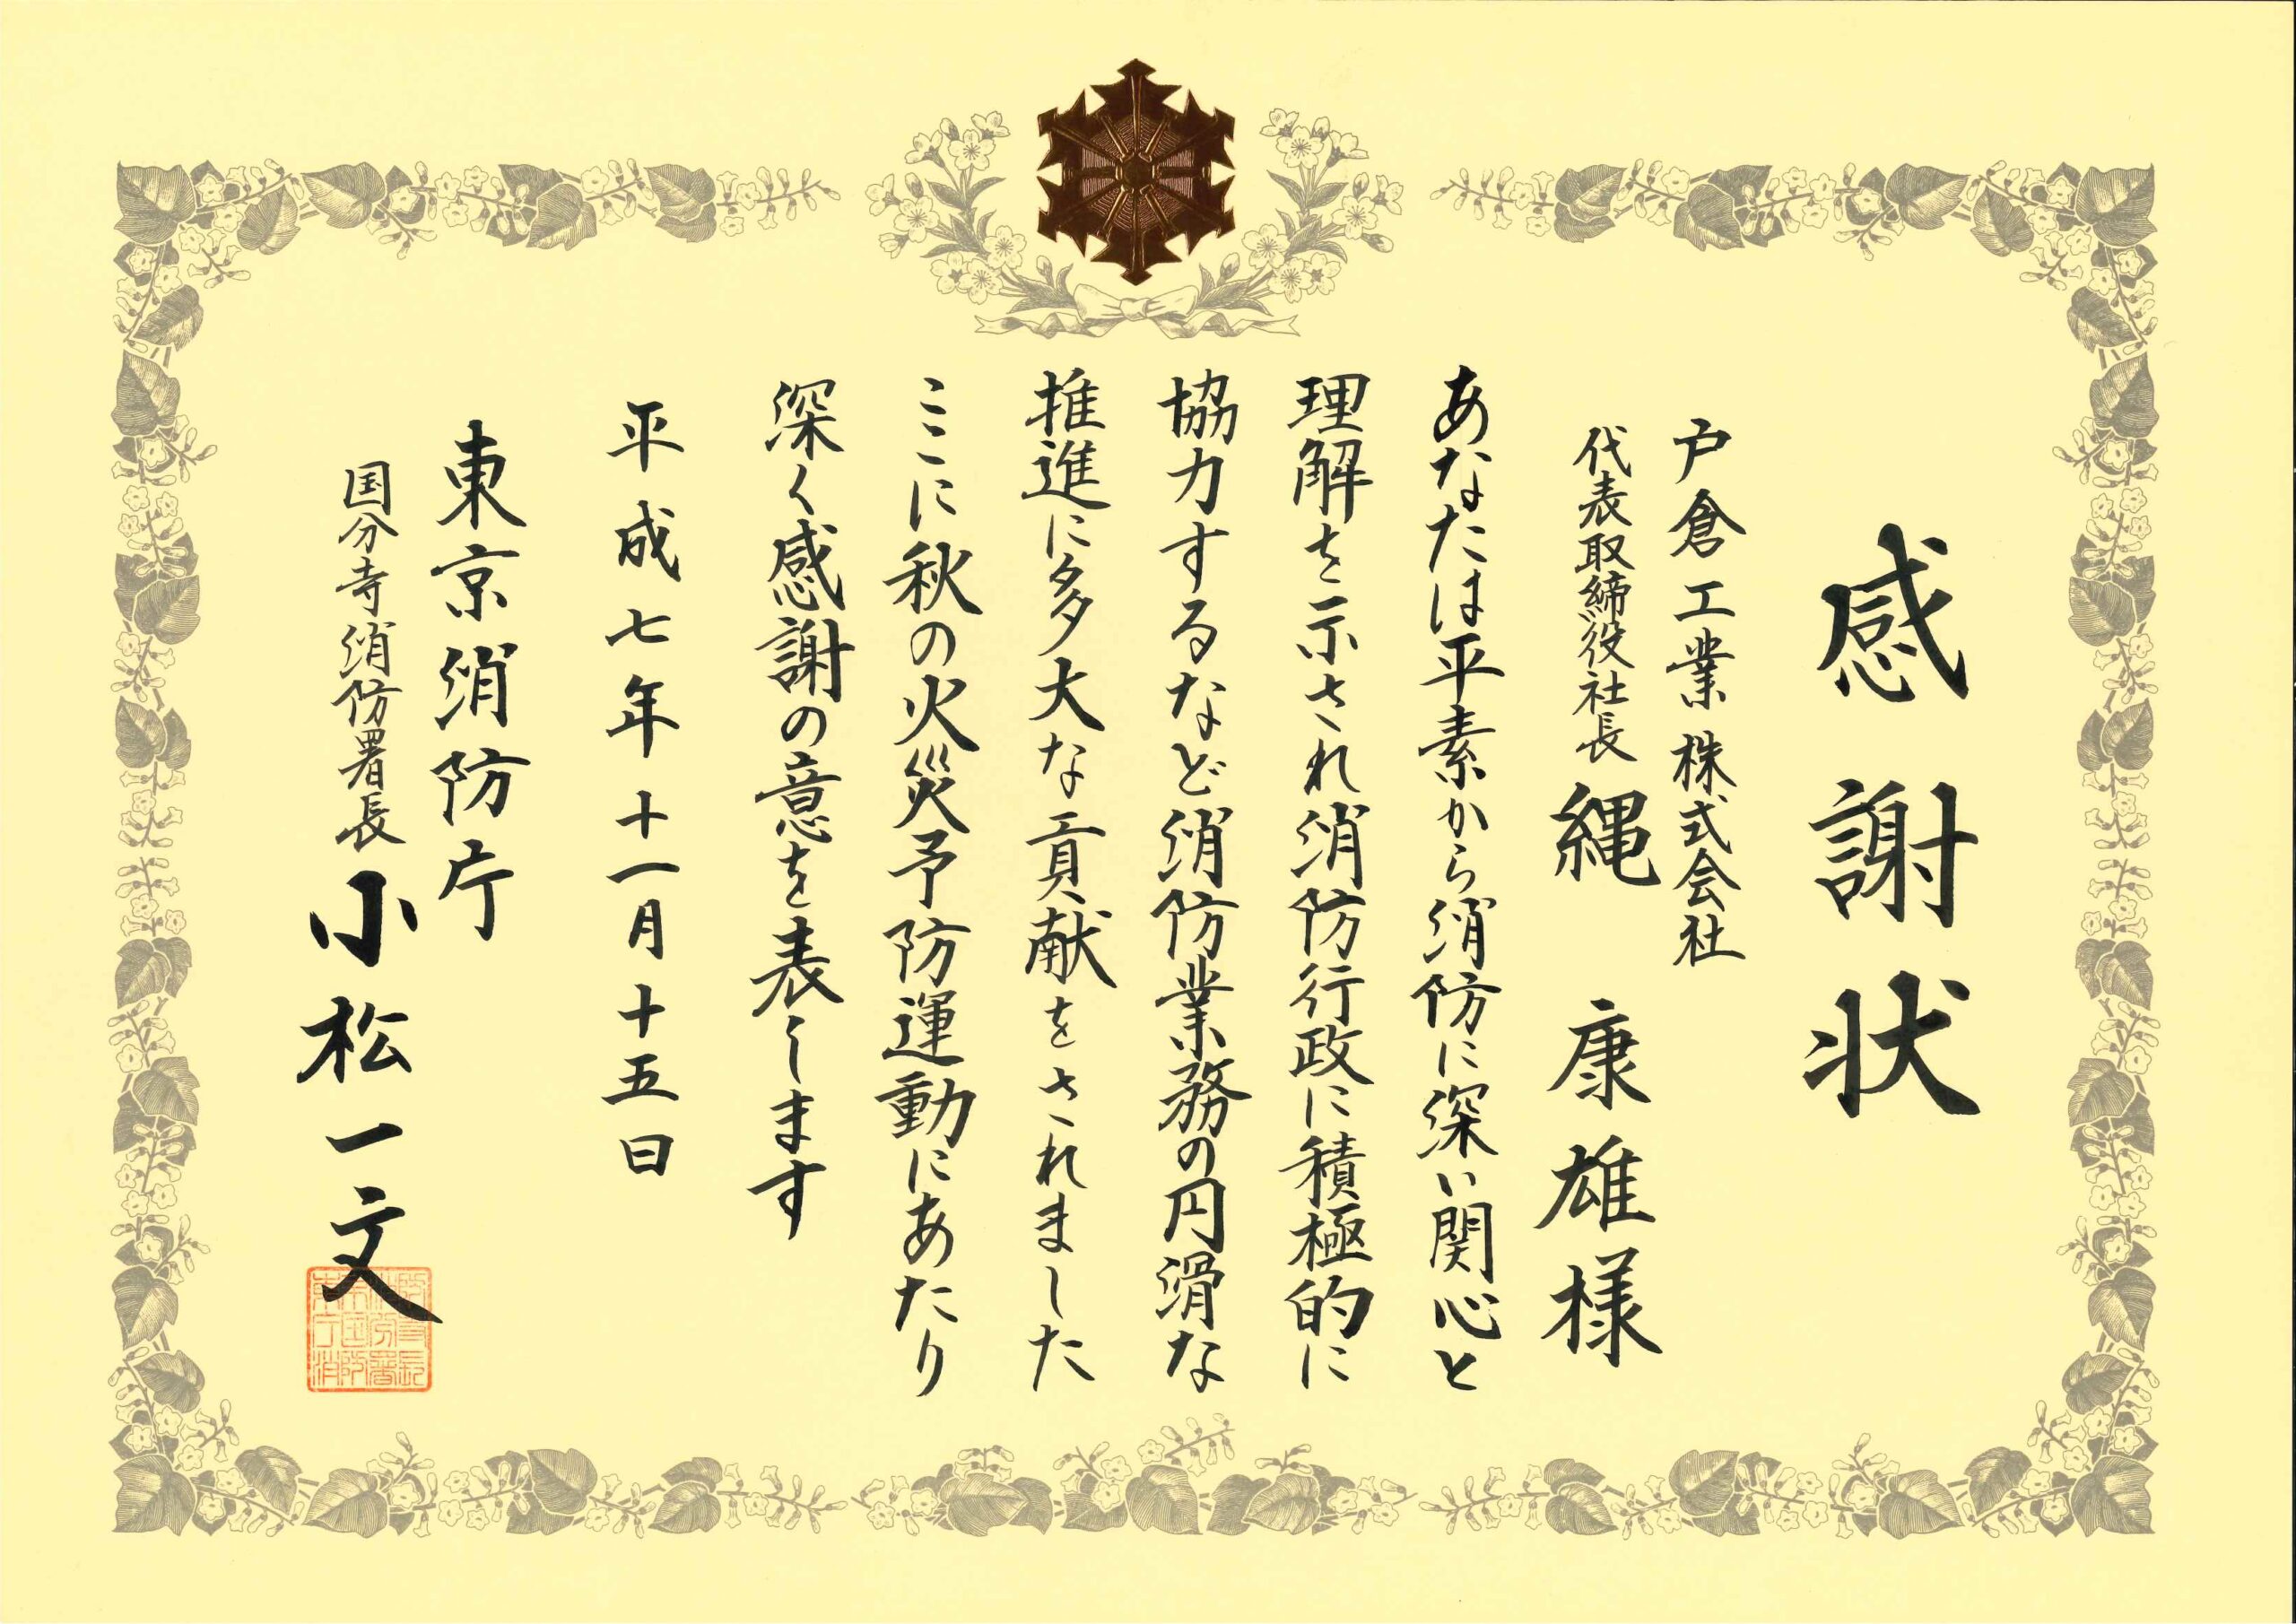 感謝状
戸倉工業株式会社
代表取締役社長 縄 康雄様
あなたは平素から消防に深い関心と
理解を示され消防行政に積極的に
協力するなど消防業務の円滑な
推進に多大な貢献をされました
ここに秋の火災予防運動にあたり
深く感謝の意を表します
平成七年十一月十五日
東京消防庁
国分寺消防署長 小松一文